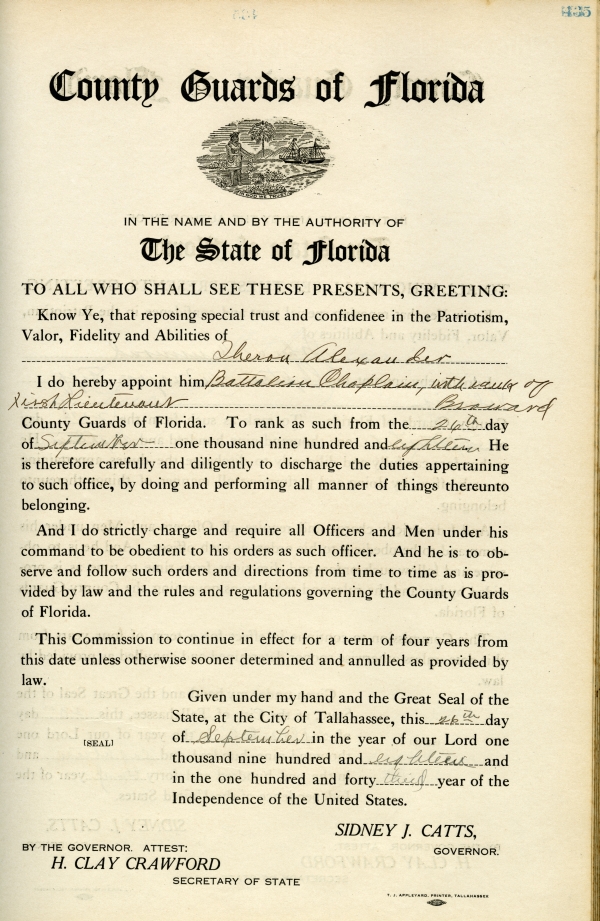 435
County Guards of Florida
IN GOD WE TRUST
IN THE NAME AND BY THE AUTHORITY OF
The State of Florida
TO ALL WHO SHALL SEE THESE PRESENTS, GREETING:
Know Ye, that reposing special trust and confidence in the Patriotism,
Valor, Fidelity and Abilities of
Theron Alexander
I do hereby appoint him Battalion Chaplain, with rank of
First Lieutenant Broward
County Guards of Florida. To rank as such from the 26th day
of September one thousand nine hundred and eighteen He
is therefore carefully and diligently to discharge the duties appertaining
to such office, by doing and performing all manner of things thereunto
belonging.
And I do strictly charge and require all Officers and Men under his
command to be obedient to his orders as such officer. And he is to ob-
serve and follow such orders and directions from time to time as is pro-
vided by law and the rules and regulations governing the County Guards
of Florida.
This Commission to continue in effect for a term of four years from
this date unless otherwise sooner determined and annulled as provided by
law.
Given under my hand and the Great Seal of the
State, at the City of Tallahassee, this 26th day
[SEAL] of September in the year of our Lord one
thousand nine hundred and eighteen and
in the one hundred and forty third year of the
Independence of the United States.
SIDNEY J. CATTS,
BY THE GOVERNOR. ATTEST: GOVERNOR.
H. CLAY CRAWFORD
SECRETARY OF STATE
T. J. APPLEYARD, PRINTER, TALLAHASSEE